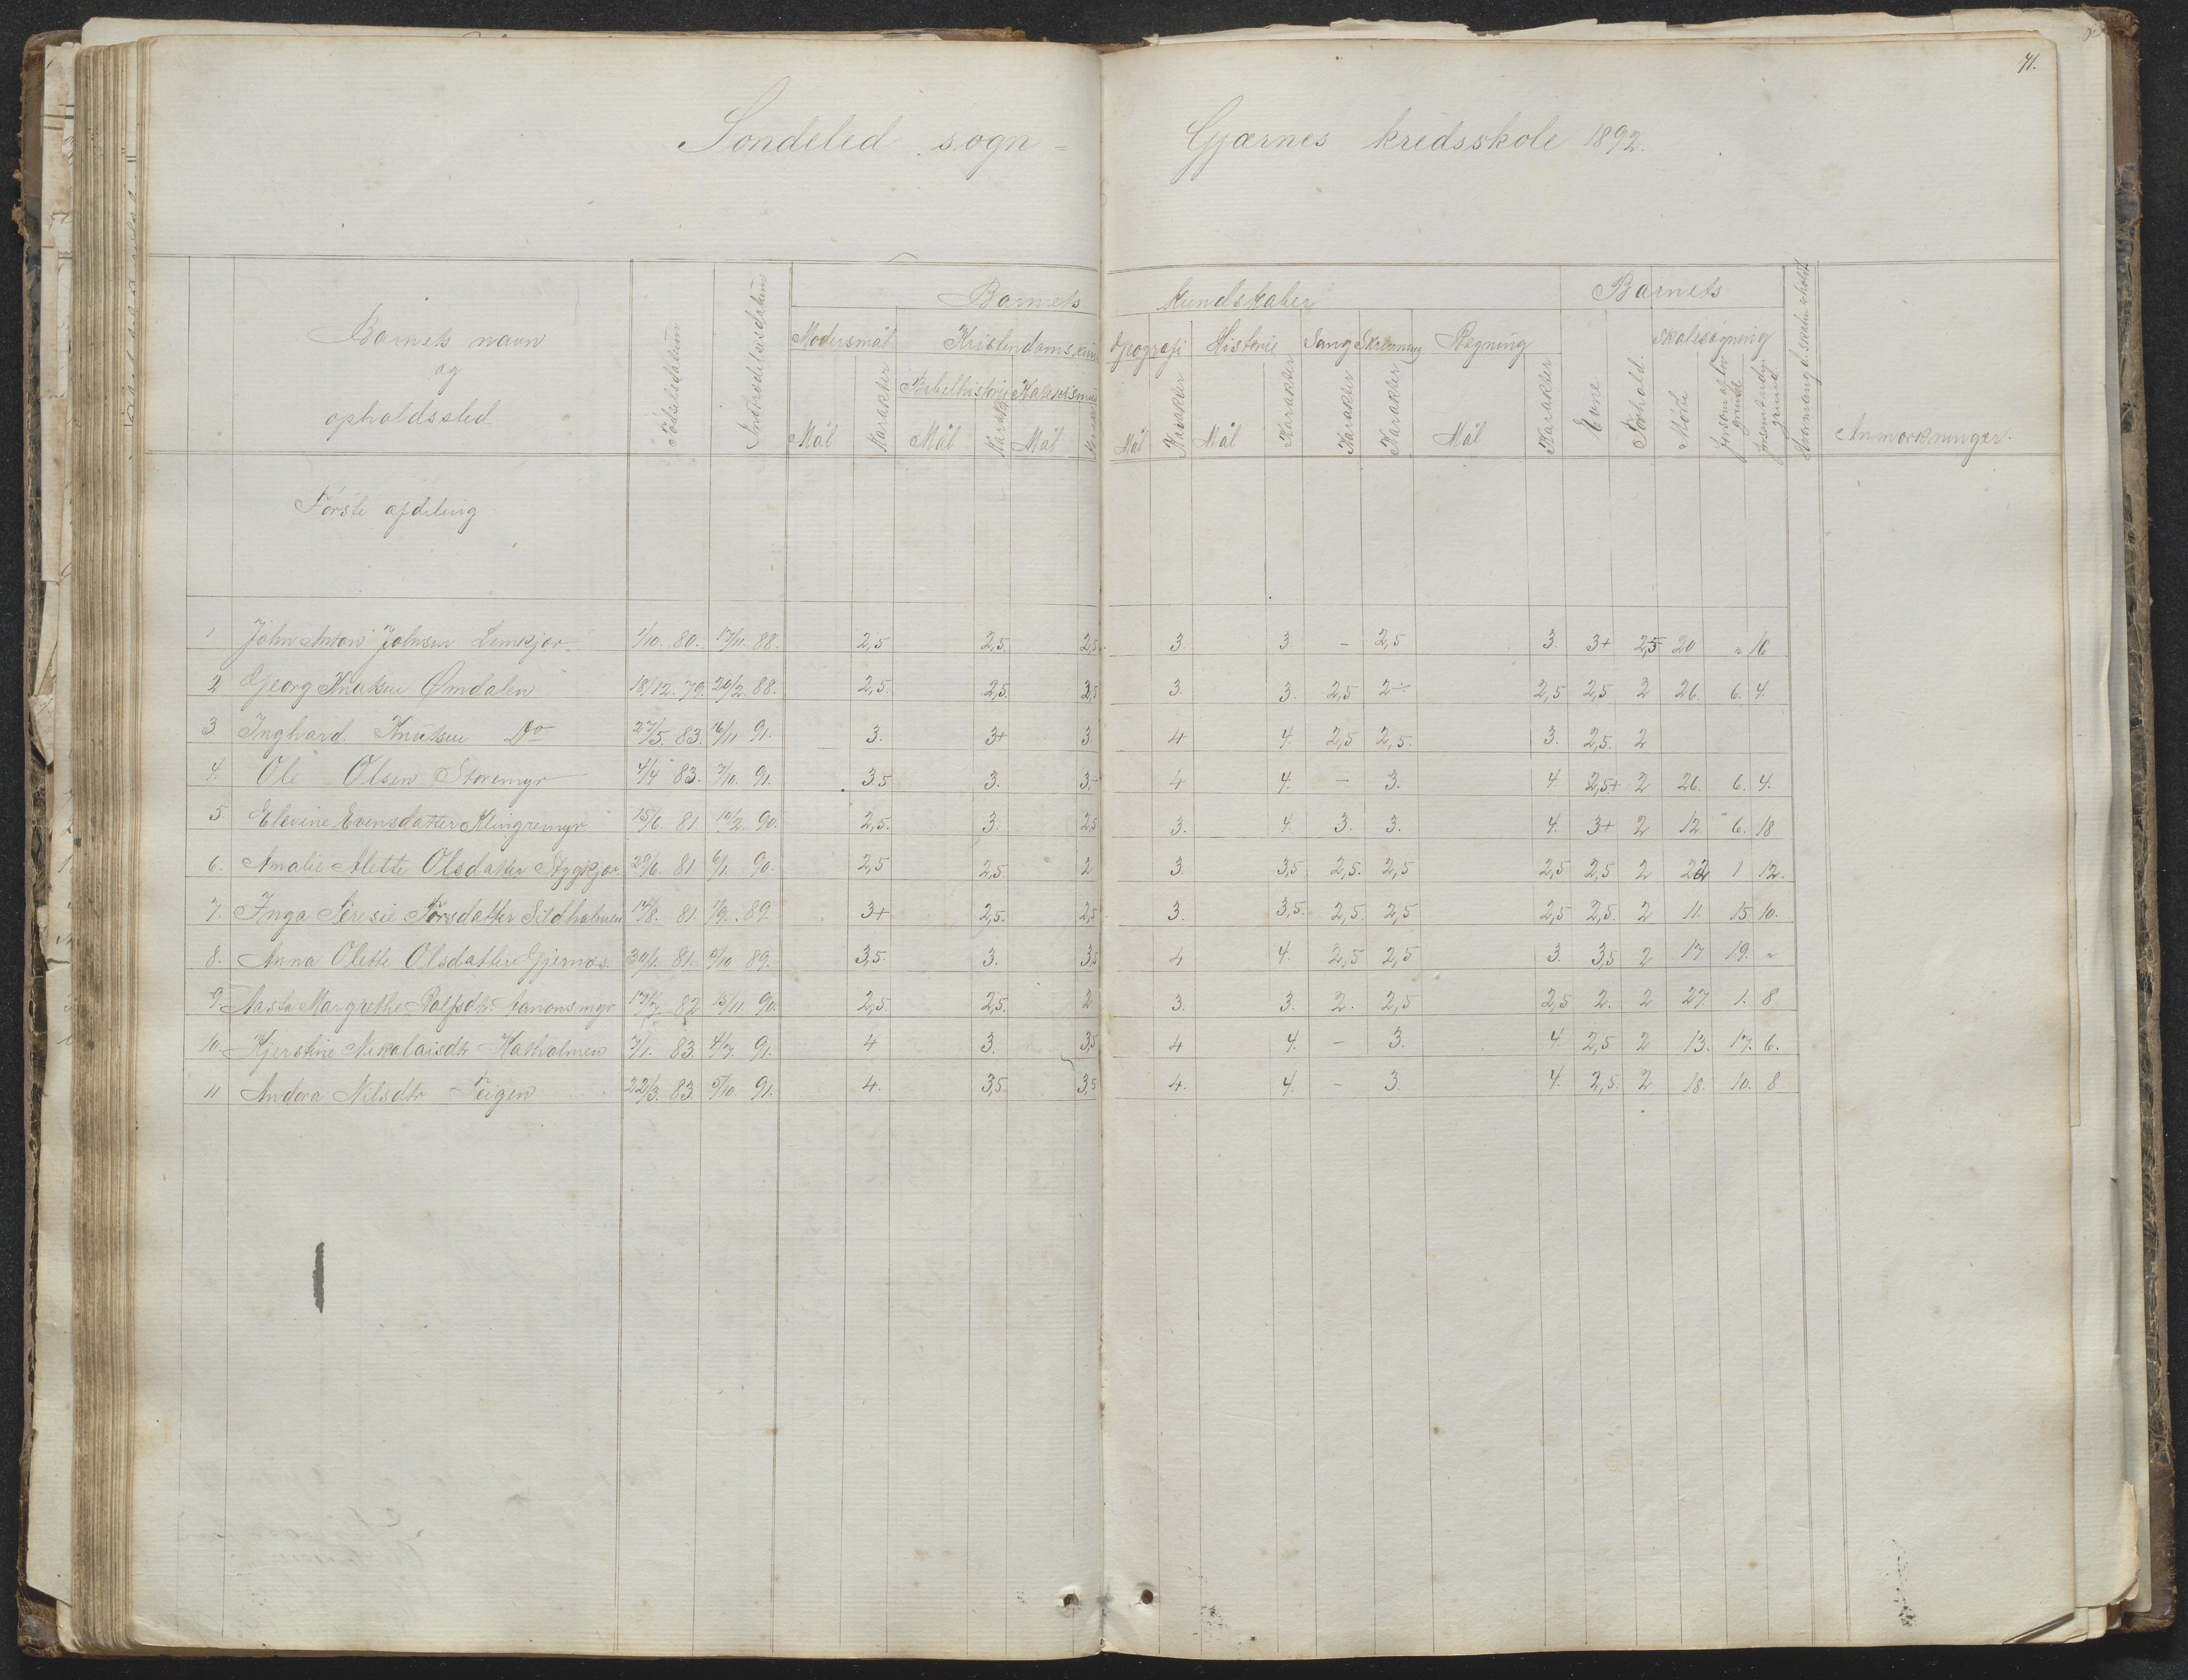 71.
Sondeled sogn = Gjærnes kredsskole 1892.
Barnets navn og opholdssted
Fødselsdatum
Indtrædelsesdatum
Barnets kundskaber
Modersmål
Mål Karakter
Kristendomskun
Bibelhistorie Katekismus
Mål Karakt Mål
Geografi Historie Sang Skrivning Regning
Mål Karakter Mål Karakter Karakter Karakter Mål Karakter
Barnets
Evne Forhold
Skolesøgning
Møtt
Anmærkninger.
Første afdeling
1 John Anton Johnsen Lemkjær 1/10. 80. 17/11. 88. 2,5 2,5. 2,5 3. 3. – 2,5 3. 3+ 2,5 20 " 16
2 Georg Knutsen Ømdalen 18/12. 79. 20/2. 88. 2,5. 2,5. 2,5 3. 3. 2,5 2÷ 2,5 2,5 2 26. 6. 4.
3 Inghard Knutsen Do 27/5. 83. 16/11 91. 3. 3+ 3. 4 4. 2,5 2,5. 3. 2,5. 2
4. Ole Olsen Storemyr 4/4 83. 7/10. 91. 3.5 3. 3÷ 4 4. – 3. 4. 2,5+ 2 26. 6. 4.
5. Elevine Evensdatter Klingremyr 15/6. 81 10/2. 90. 2,5. 3. 2,5 3. 4. 3. 3. 4. 3+ 2 12 6. 18
6. Amalie Alette Olsdatter Stygkjær 29/6. 81. 6/1. 90. 2,5 2,5. 2 3. 3,5 2,5. 2,5 2,5 2,5 2 22 1 12.
7. Inga Teresie Torsdatter Sildholmen 14/8. 81. 7/9. 89. 3+ 2,5. 2,5 3. 3,5. 2,5. 2,5 2,5 2,5. 2 11. 15 10.
8. Anna Olette Olsdatter Gjernes. 30/1. 81. 9/10 89. 3,5. 3. 3,5 4 4. 2,5 2,5 3. 3,5 2 17 19. "
9. Aasta Margrethe Rolfsdtr. Aanonsmyr 17/7 82 15/11 90. 2,5. 2,5. 2 3. 3. 2. 2,5 2,5 2. 2 27. 1. 8
10. Kjerstine Nikolaisdtr Katholmen 7/1. 83. 4/7. 91. 4 3. 3,5 4 4. – 3. 4 2,5 2 13. 17. 6.
11 Andora Nilsdtr Teigen 22/3. 83. 5/10. 91. 4. 3,5. 3,5 4. 4. – 3. 4. 2,5. 2 18. 10. 8